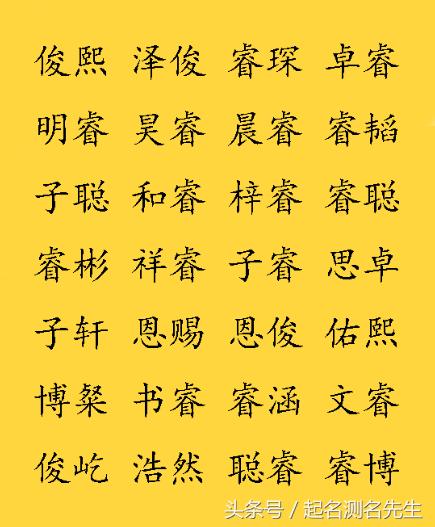 俊熙 泽俊 睿琛 卓睿
明睿 昊睿 晨睿 睿韬
子聪 和睿 梓睿 睿聪
睿彬 祥睿 子睿 思卓
子轩 恩赐 恩俊 佑熙
博粲 书睿 睿涵 文睿
俊屹 浩然 聪睿 睿博
头条号 / 起名测名先生